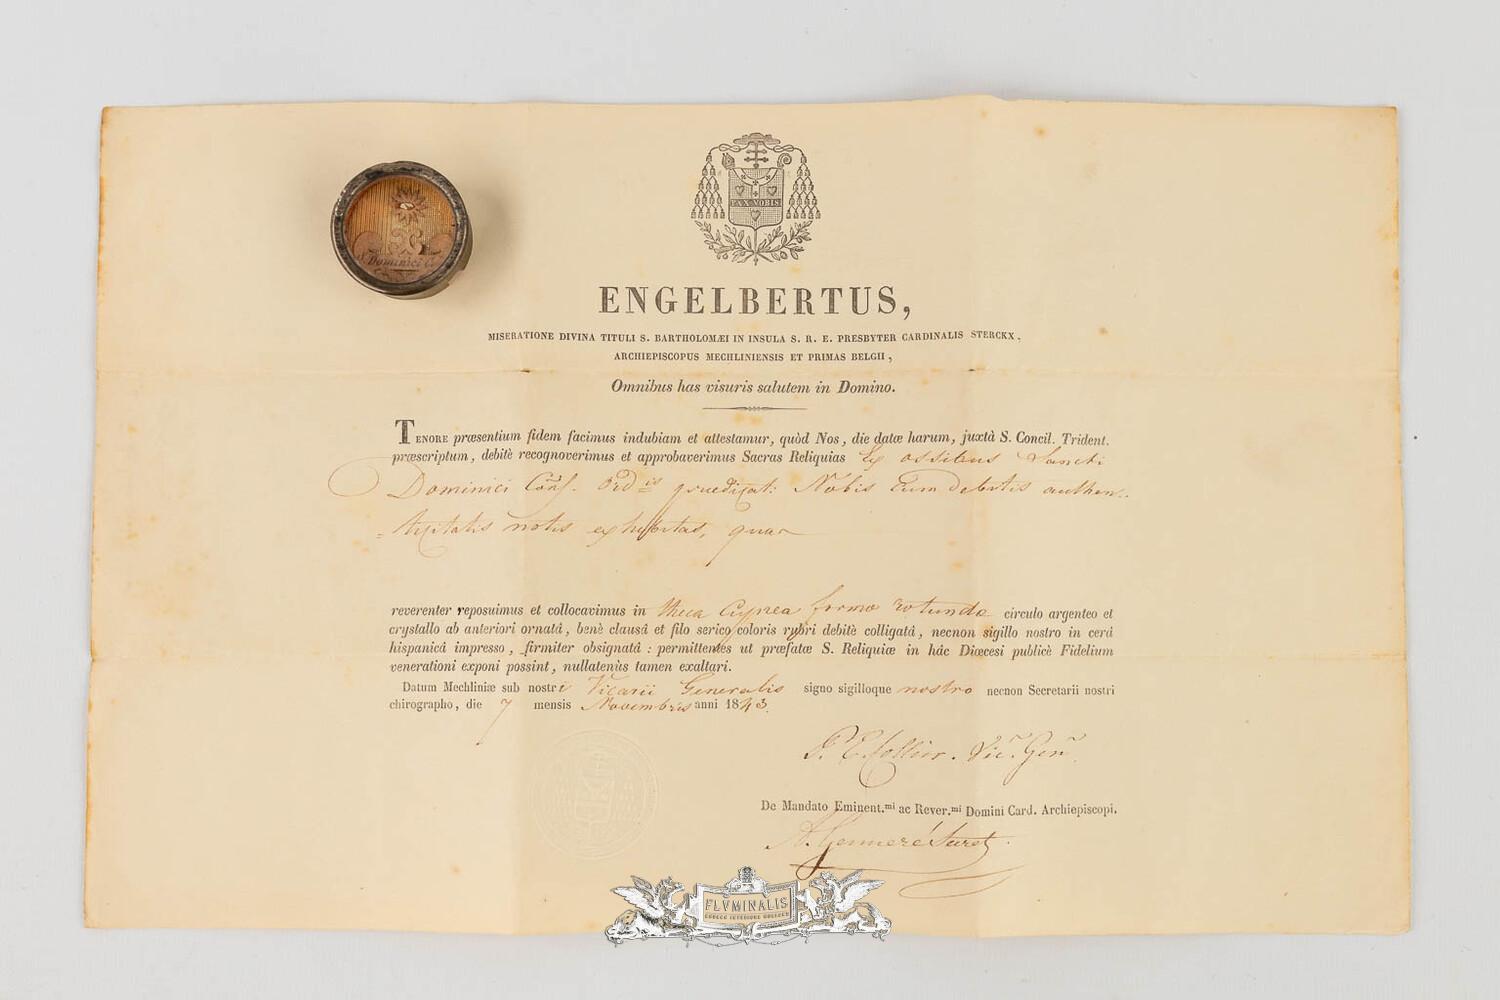 S. Dominici C.
PAX NOBIS
ENGELBERTUS,
MISERATIONE DIVINA TITULI S. BARTHOLOMÆI IN INSULA S. R. E. PRESBYTER CARDINALIS STERCKX,
ARCHIEPISCOPUS MECHLINIENSIS ET PRIMAS BELGII,
Omnibus has visuris salutem in Domino.
TENORE præsentium fidem facimus indubiam et attestamur, quòd Nos, die datæ harum, juxtà S. Concil. Trident.
præscriptum, debitè recognoverimus et approbaverimus Sacras Reliquias Ex ossibus Sancti
Dominici Conf. Ordis prædicat: Nobis cum debitis authen
=ticitatis notis exhibitas, quas
reverenter reposuimus et collocavimus in theca cuprea forma rotunda circulo argenteo et
crystallo ab anteriori ornatâ, benè clausâ et filo serico coloris rubri debitè colligatâ, necnon sigillo nostro in cerâ
hispanicâ impresso, firmiter obsignatâ : permittentes ut præfatæ S. Reliquiæ in hâc Diœcesi publicè Fidelium
venerationi exponi possint, nullatenùs tamen exaltari.
Datum Mechliniæ sub nostri Vicarii Generalis signo sigilloque nostro necnon Secretarii nostri
chirographo, die 7 mensis Novembris anni 1843.
Vic. Gen.
De Mandato Eminent.mi ac Rever.mi Domini Card. Archiepiscopi.
FLVMINALIS